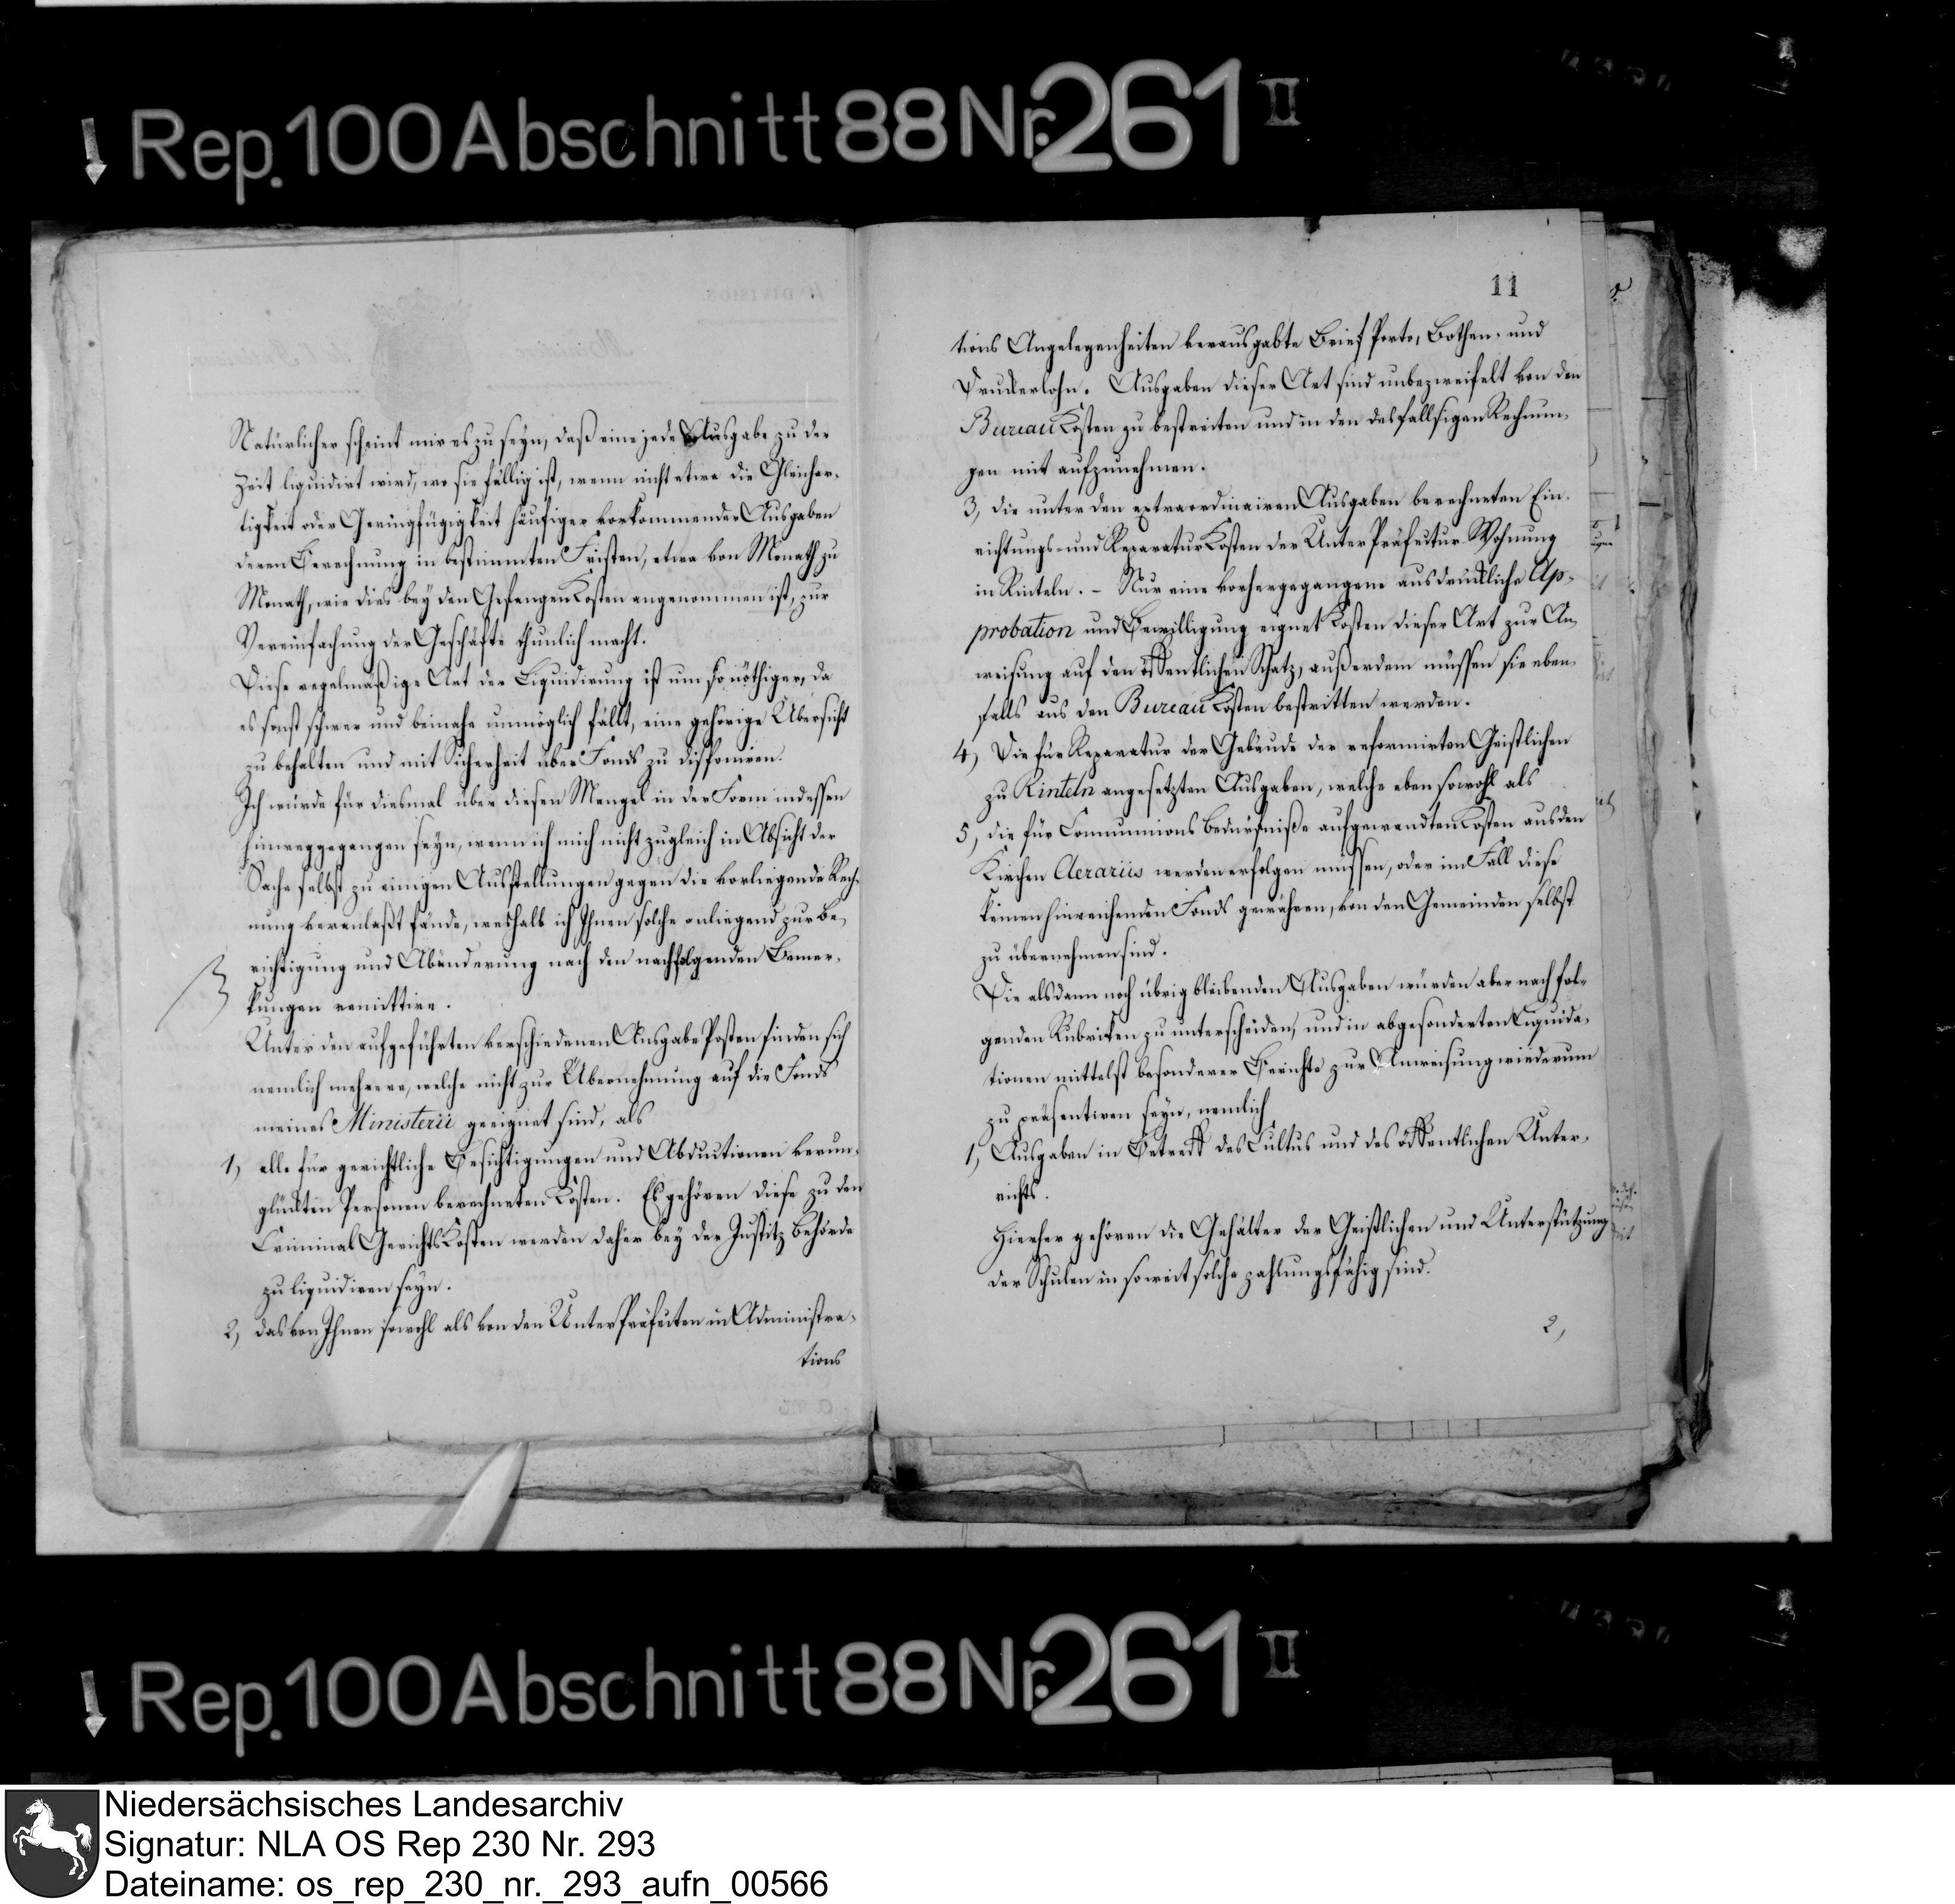 Rep. 100 Abschnitt 88 Nr. 261 II
Natürlicher scheint mir es zu seyn, daß eine jede Ausgabe zu der
Zeit liquidirt wird, wo sie fällig ist, wenn nicht etwa die Gleichar-
tigkeit oder Geringfügigkeit häufiger vorkommender Ausgaben
deren Berechnung in bestimmten Fristen, etwa von Monath zu
Monath, wie dies bey den Gefangen Kosten angenommen ist, zur
Vereinfachung der Geschäfte thunlich macht.
Diese regelmäßige Art der Liquidirung ist um so nöthiger, da
es sonst schwer und beinahe unmöglich fällt, eine gehörige Übersicht
zu behalten und mit Sicherheit über Fonds zu disponiren.
Ich würde für diesmal über diesen Mangel in der Form indessen
hinweggegangen seyn, wenn ich mich nicht zugleich in Absicht der
Sache selbst zu einigen Ausstellungen gegen die vorliegende Rech-
nung veranlaßt fände, weshalb ich Ihnen solche anliegend zur Be-
richtigung und Abänderung nach den nachfolgenden Bemer-
kungen remittire.
Unter den aufgeführten verschiedenen Ausgabe Posten finden sich
nemlich mehrere, welche nicht zur Übernehmung auf die Fonds
meines Ministerii geeignet sind, als
1, alle für gerichtliche Besichtigungen und Abductionen verun-
glückten Personen berechneten Kosten. Es gehören diese zu den
Criminal Gerichts Kosten werden daher bey der Justitz Behörde
zu liquidiren seyn.
2, das von Ihnen sowohl als von den Unter Präfecten in Administra-
tions
11
tions Angelegenheiten verausgabte Brief Porto, Bothen- und
Druckerlohn. Ausgaben dieser Art sind unbezweifelt von den
Bureau Kosten zu bestreiten und in den desfallsigen Rechnun-
gen mit aufzunehmen.
3, die unter den extraordinairen Ausgaben berechneten Ein-
richtungs- und Reparatur Kosten der Unter Präfectur Wohnung
in Rinteln. – Nur eine vorhergegangene ausdrückliche Ap-
probation und Bewilligung eignet Kosten dieser Art zur An-
weisung auf den öffentlichen Schatz, außerdem müssen sie eben-
falls aus den Bureau Kosten bestritten werden.
4, Die für Reparatur der Gebäude der reformirten Geistlichen
zu Rinteln angesetzten Ausgaben, welche eben sowohl als
5, die für Communions Bedürfniße aufgewandten Kosten aus den
Kirchen Aerariis werden erfolgen müssen, oder im Fall diese
keinen hinreichenden Fonds gewähren, von den Gemeinden selbst
zu übernehmen sind.
Die alsdann noch übrig bleibenden Ausgaben würden aber nach fol-
genden Rubriken zu unterscheiden, und in abgesonderten Liquida-
tionen mittelst besonderer Berichte zur Anweisung wiederum
zu präsentiren seyn, nemlich
1, Ausgaben in Betreff des Cultus und des öffentlichen Unter-
richts.
Hierher gehören die Gehälter der Geistlichen und Unterstützung
der Schulen in soweit solche zahlungsfähig sind.
2,
Rep. 100 Abschnitt 88 Nr. 261 II
Niedersächsisches Landesarchiv
Signatur: NLA OS Rep 230 Nr. 293
Dateiname: os_rep_230_nr._293_aufn_00566